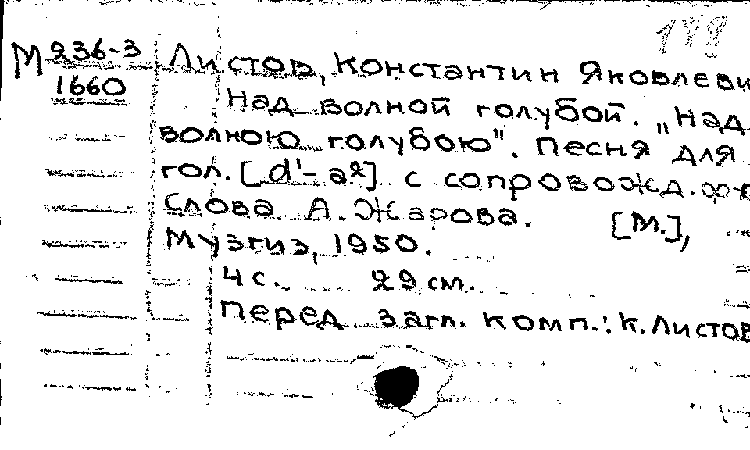 188
М 236-3 Листов, Константин Яковлеви
1660 Над волной голубой. „Над
волною голубою". Песня для
гол. [d'-a2] с сопровожд. ф-
Слова А. Жарова. [М.],
Музгиз, 1950.
4 с. 29 см.
Перед загл. комп.: К. Листов